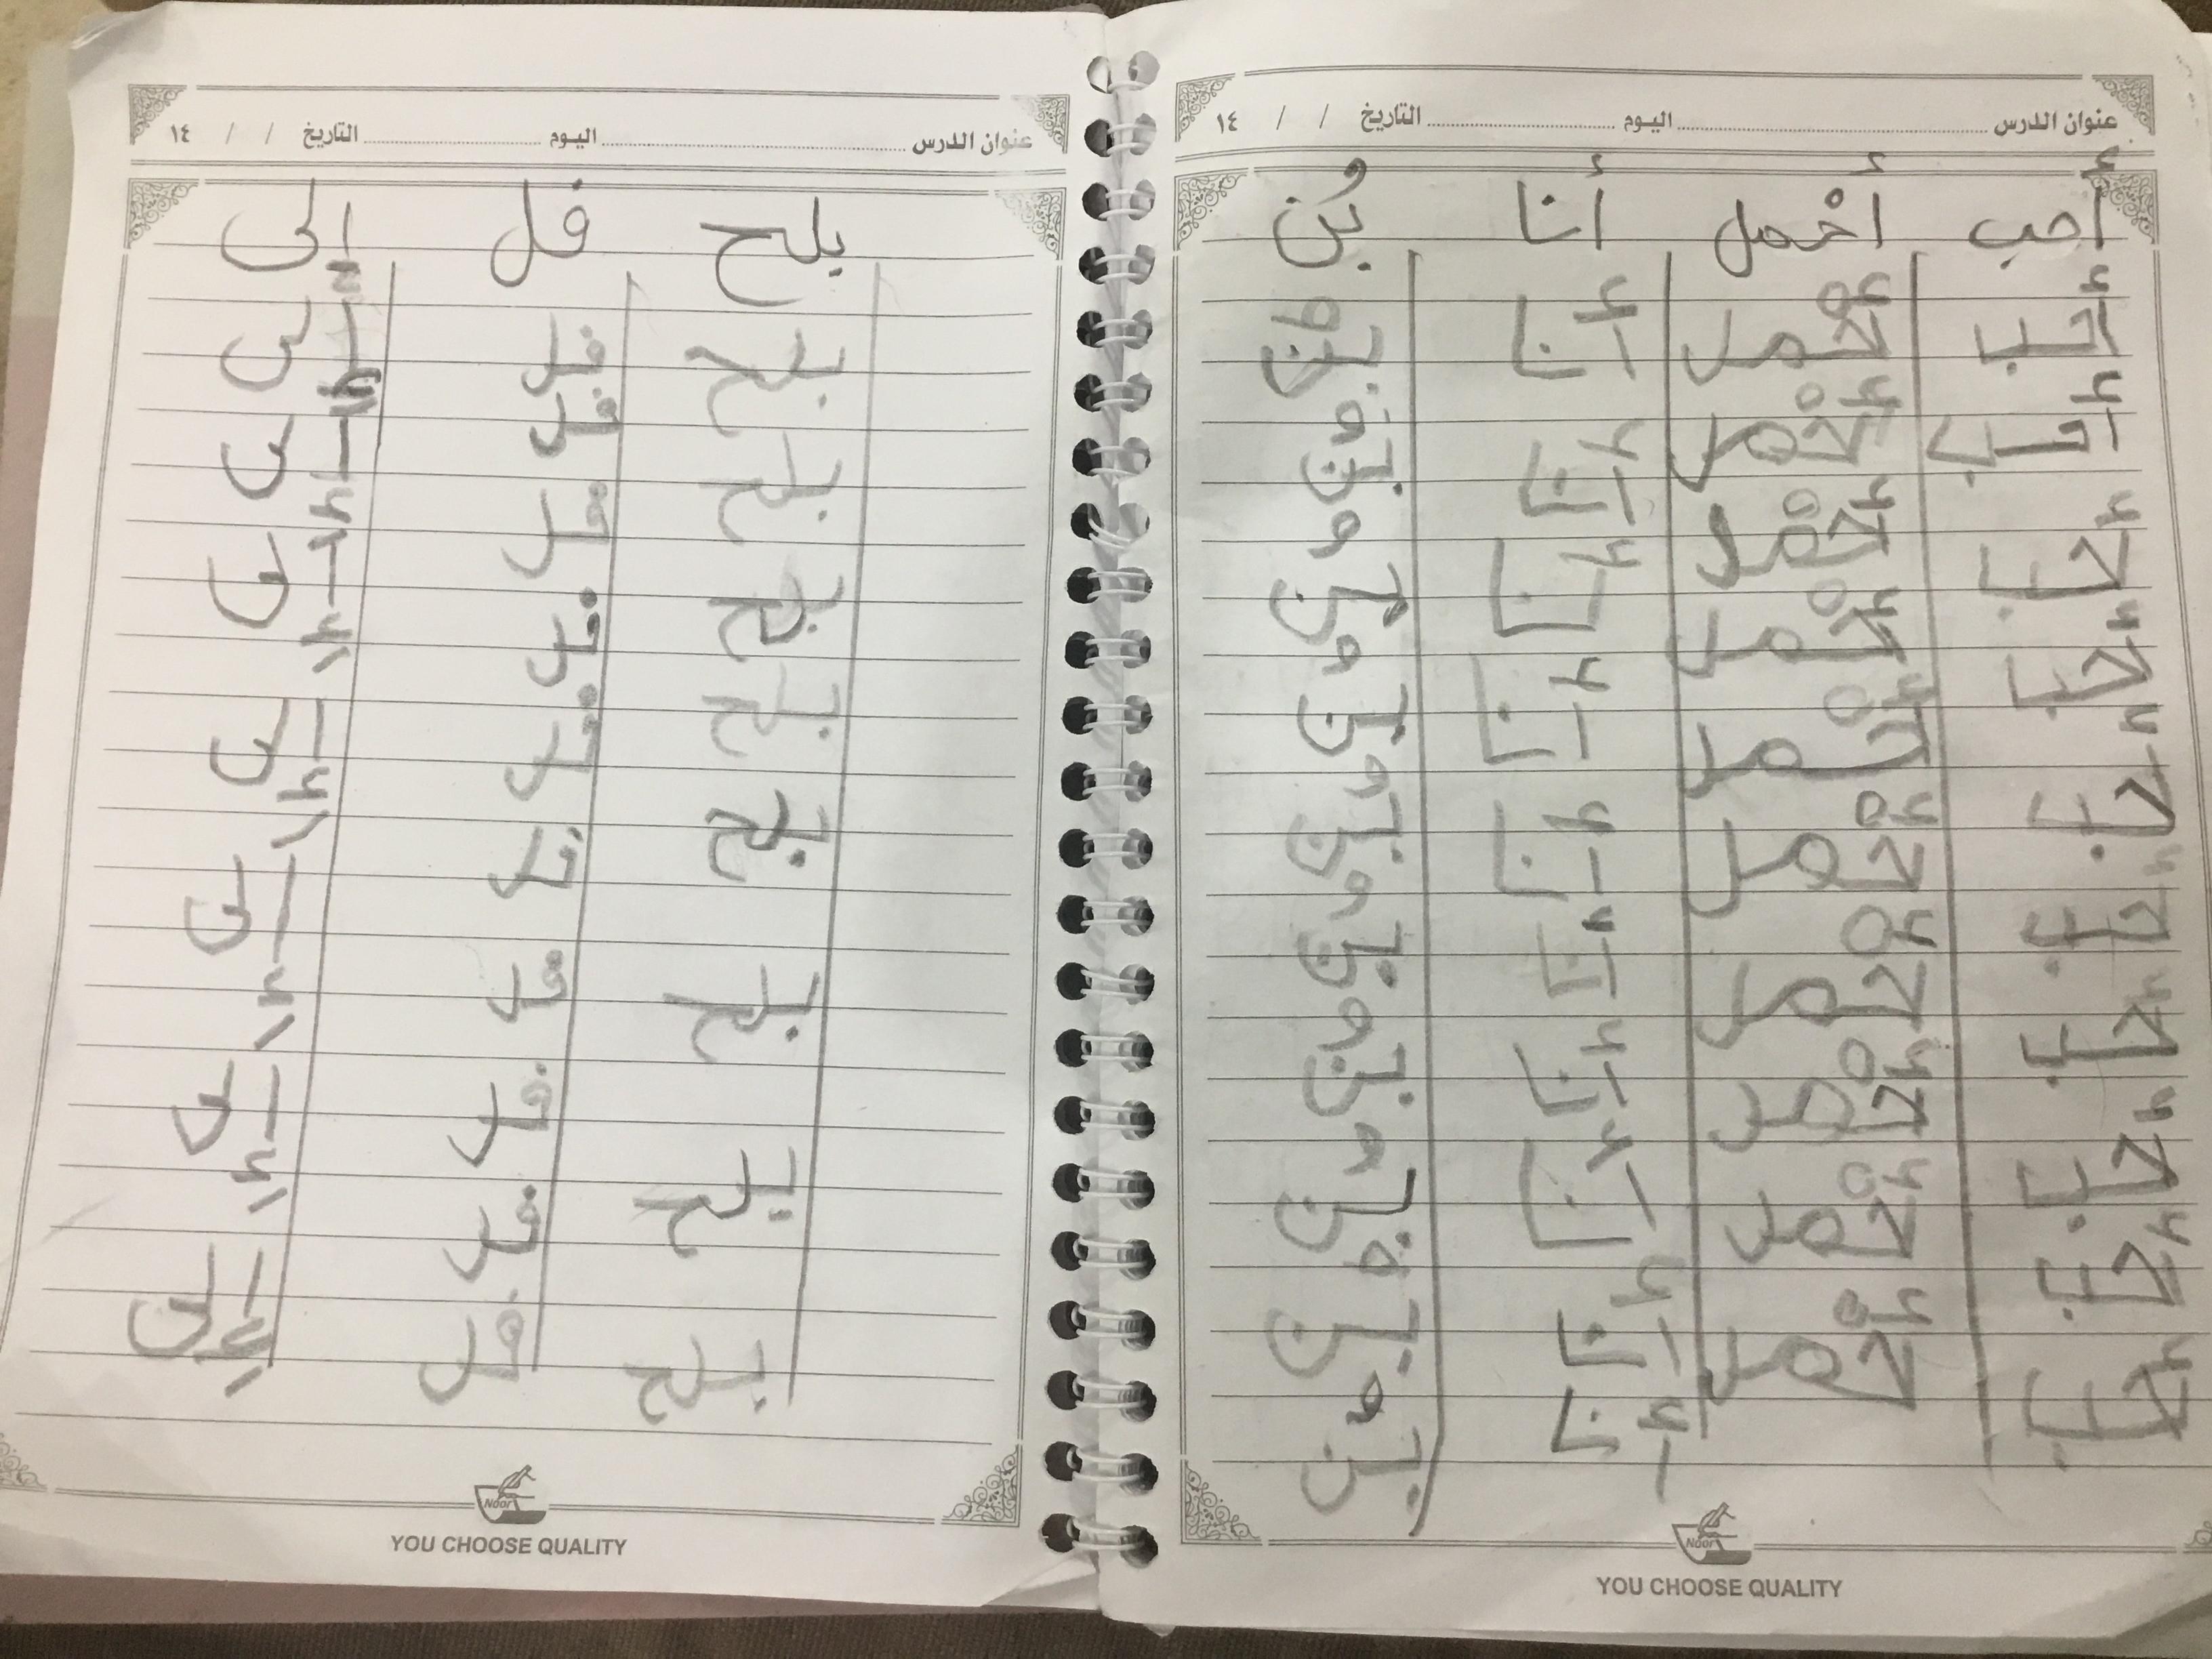 عنوان الدرس اليوم التاريخ / / ١٤
أحب أحمل أنا بُن
أحب أحمل أنا بن
أحب أحمل أنا بن
أحب أحمل أنا بن
أحب أحمل أنا بن
أحب أحمل أنا بن
أحب أحمل أنا بن
أحب أحمل أنا بن
أحب أحمل أنا بن
أحب أحمل أنا بن
أحب أحمل
Noor
YOU CHOOSE QUALITY
عنوان الدرس اليوم التاريخ / / ١٤
بلح فل إلى
بلح فل إلى
بلح فل إلى
بلح فل إلى
بلح فل إلى
بلح فل إلى
بلح فل إلى
بلح فل إلى
بلح فل
فل
Noor
YOU CHOOSE QUALITY